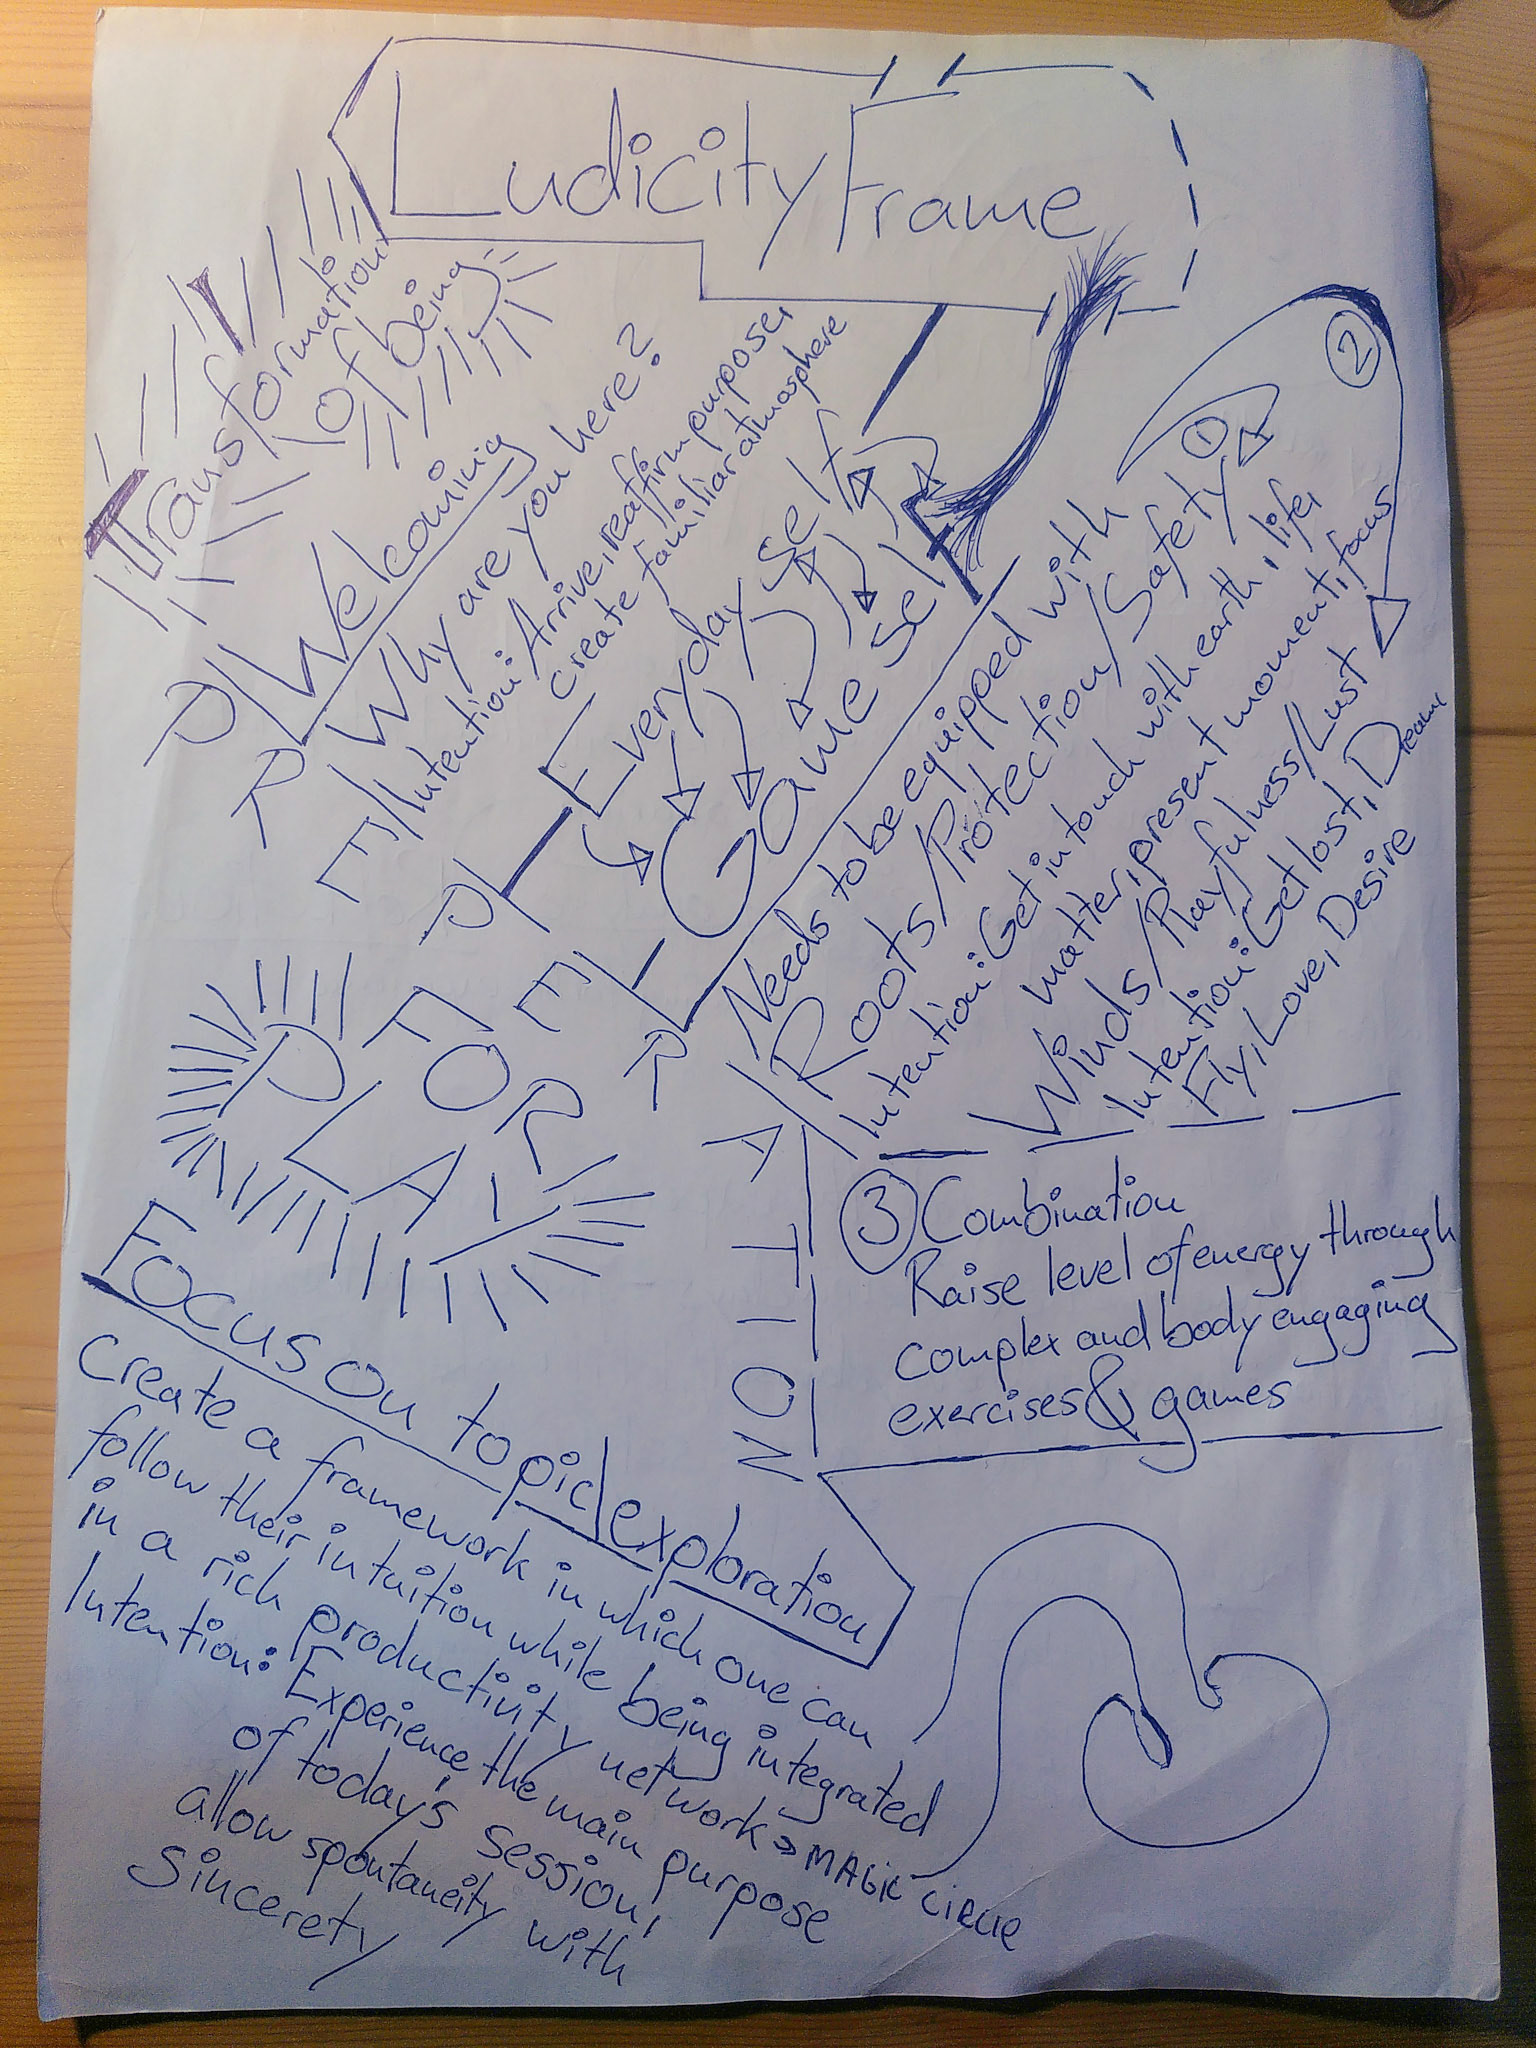 Ludicity Frame
Transformation
of being
Welcoming
Why are you here?
Intention: Arrive, reaffirm purpose,
create familiar atmosphere
PREPERATION
FOR
PLAY
Everyday Self
Game Self
Needs to be equipped with
Roots/Protection/Safety ①
Intention: Get in touch with earth, life,
matter, present moment, focus
②
Winds/Playfulness/Lust
Intention: Get lost, Dream
Fly, Love, Desire
③ Combination
Raise level of energy through
complex and body engaging
exercises & games
Focus on topic/exploration
Create a framework in which one can
follow their intuition while being integrated
in a rich productivity network → MAGIC CIRCLE
Intention: Experience the main purpose
of today's session,
allow spontaneity with
sincerety